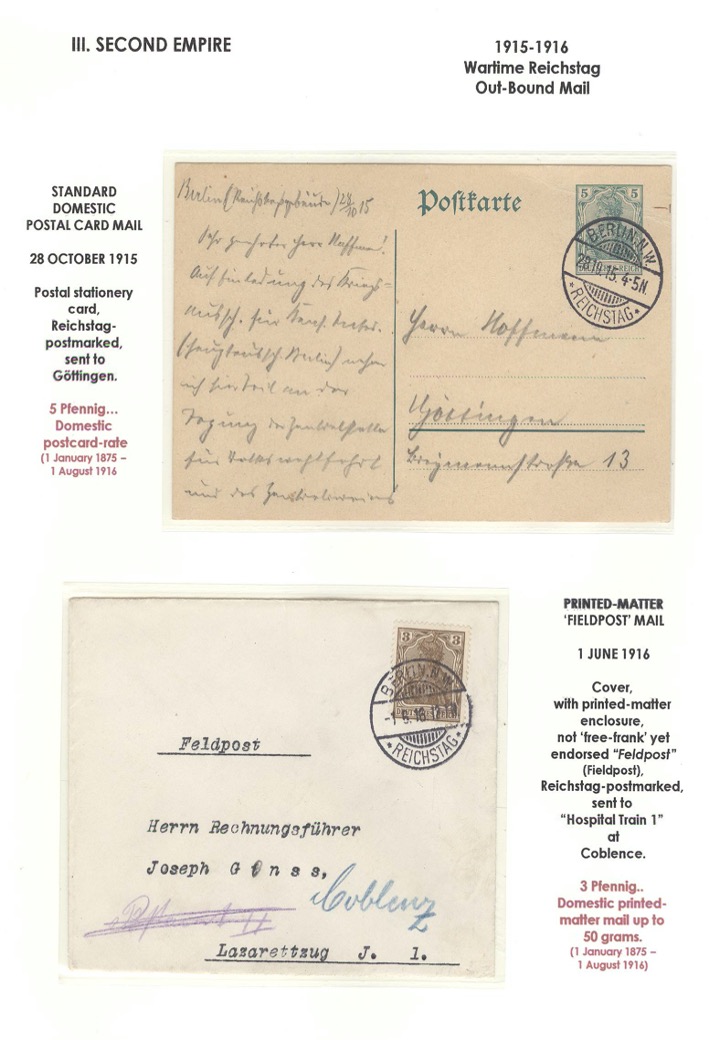 III. SECOND EMPIRE
1915-1916
Wartime Reichstag
Out-Bound Mail
STANDARD
DOMESTIC
POSTAL CARD MAIL
28 OCTOBER 1915
Postal stationery
card,
Reichstag-
postmarked,
sent to
Göttingen.
5 Pfennig...
Domestic
postcard-rate
(1 January 1875 –
1 August 1916
Berlin (Reichstagsgebäude) 28/10 15
Sehr geehrter Herr Hoffmann!
Auf Einladung des Kriegs=
aussch. für Kons. Inter.
(Hauptaussch. Berlin) nehme
ich hier teil an der
Tagung der Zentralstelle
für Volkswohlfahrt
und des Zentralvereins
Postkarte
5 5
BERLIN. N.W.
28.10.15. 4-5N.
* REICHSTAG *
Herrn Hoffmann
Göttingen
13
PRINTED-MATTER
'FIELDPOST' MAIL
1 JUNE 1916
Cover,
with printed-matter
enclosure,
not 'free-frank' yet
endorsed "Feldpost"
(Fieldpost),
Reichstag-postmarked,
sent to
"Hospital Train 1"
at
Coblence.
3 Pfennig..
Domestic printed-
matter mail up to
50 grams.
(1 January 1875 –
1 August 1916)
3 3
BERLIN. N.W.
* REICHSTAG *
Feldpost
Herrn Rechnungsführer
Joseph G i n s s,
Coblenz
Lazarettzug J. 1.